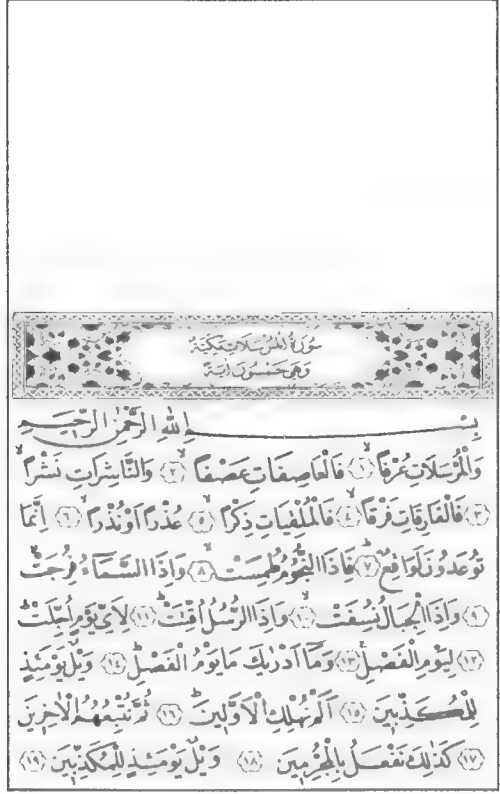 سُورَةُ الْمُرْسَلَاتِ مَكِّيَّةٌ
وَهِيَ خَمْسُونَ اٰيَةً
بِسْمِ اللّٰهِ الرَّحْمٰنِ الرَّحِيمِ
وَالْمُرْسَلَاتِ عُرْفًاۙ ﴿١﴾ فَالْعَاصِفَاتِ عَصْفًاۙ ﴿٢﴾ وَالنَّاشِرَاتِ نَشْرًاۙ
﴿٣﴾ فَالْفَارِقَاتِ فَرْقًاۙ ﴿٤﴾ فَالْمُلْقِيَاتِ ذِكْرًاۙ ﴿٥﴾ عُذْرًا اَوْ نُذْرًاۙ ﴿٦﴾ اِنَّمَا
تُوعَدُونَ لَوَاقِعٌۜ ﴿٧﴾ فَاِذَا النُّجُومُ طُمِسَتْۙ ﴿٨﴾ وَاِذَا السَّمَٓاءُ فُرِجَتْۙ
﴿٩﴾ وَاِذَا الْجِبَالُ نُسِفَتْۙ ﴿١٠﴾ وَاِذَا الرُّسُلُ اُقِّتَتْۜ ﴿١١﴾ لِاَيِّ يَوْمٍ اُجِّلَتْۜ
﴿١٢﴾ لِيَوْمِ الْفَصْلِۚ ﴿١٣﴾ وَمَٓا اَدْرٰيكَ مَا يَوْمُ الْفَصْلِۜ ﴿١٤﴾ وَيْلٌ يَوْمَئِذٍ
لِلْمُكَذِّبِينَ ﴿١٥﴾ اَلَمْ نُهْلِكِ الْاَوَّلِينَۜ ﴿١٦﴾ ثُمَّ نُتْبِعُهُمُ الْاٰخِرِينَ
﴿١٧﴾ كَذٰلِكَ نَفْعَلُ بِالْمُجْرِمِينَ ﴿١٨﴾ وَيْلٌ يَوْمَئِذٍ لِلْمُكَذِّبِينَ ﴿١٩﴾